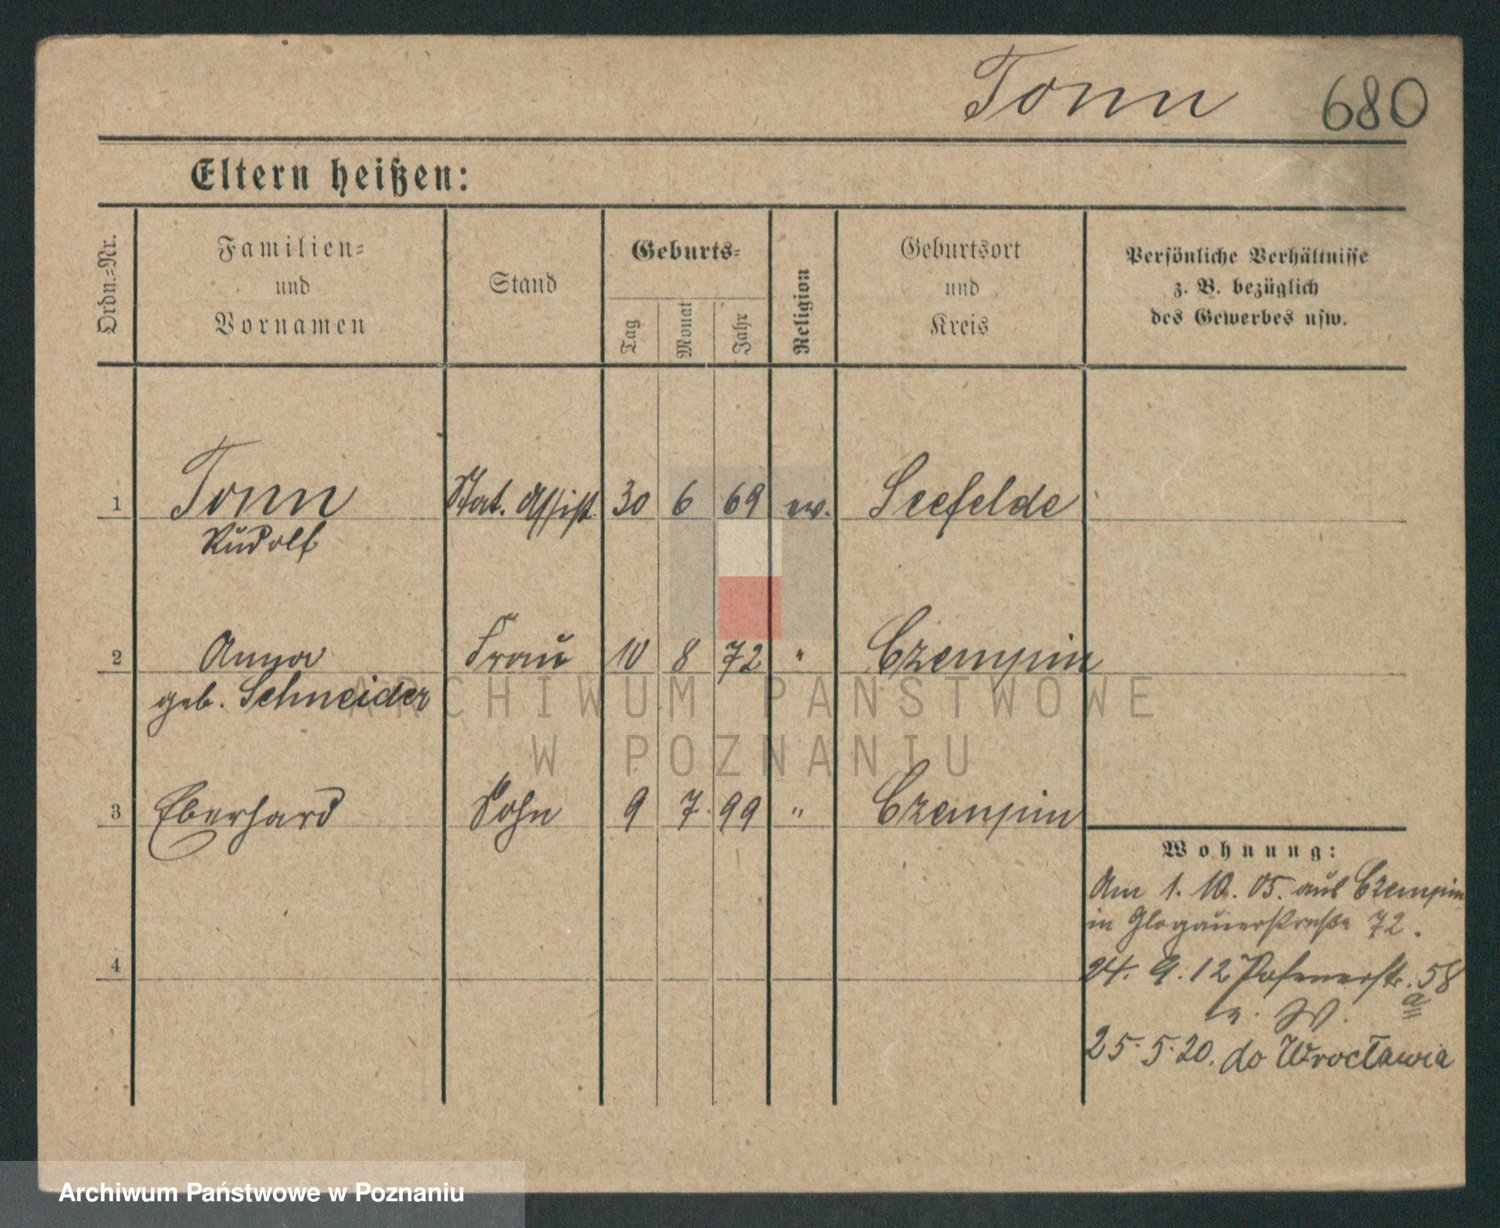 Tonn 680
Eltern heißen:
Ordn.-Nr.
Familien-
und
Vornamen
Stand
Geburts-
Tag
Monat
Jahr
Religion
Geburtsort
und
Kreis
Persönliche Verhältnisse
z. B. bezüglich
des Gewerbes usw.
1 Tonn Stat. Assist. 30 6 69 ev. Seefelde
Rudolf
2 Anna Frau 10 8 72 " Czempin
geb. Schneider
ARCHIWUM PAŃSTWOWE
W POZNANIU
3 Eberhard Sohn 9 7 99 " Czempin
Wohnung:
Am 1. 10. 05. aus Czempin
in Glogauerstraße 72.
4
24. 9. 12 Posenerstr. 58
a
W.
25. 5. 20. do Wrocławia
Archiwum Państwowe w Poznaniu